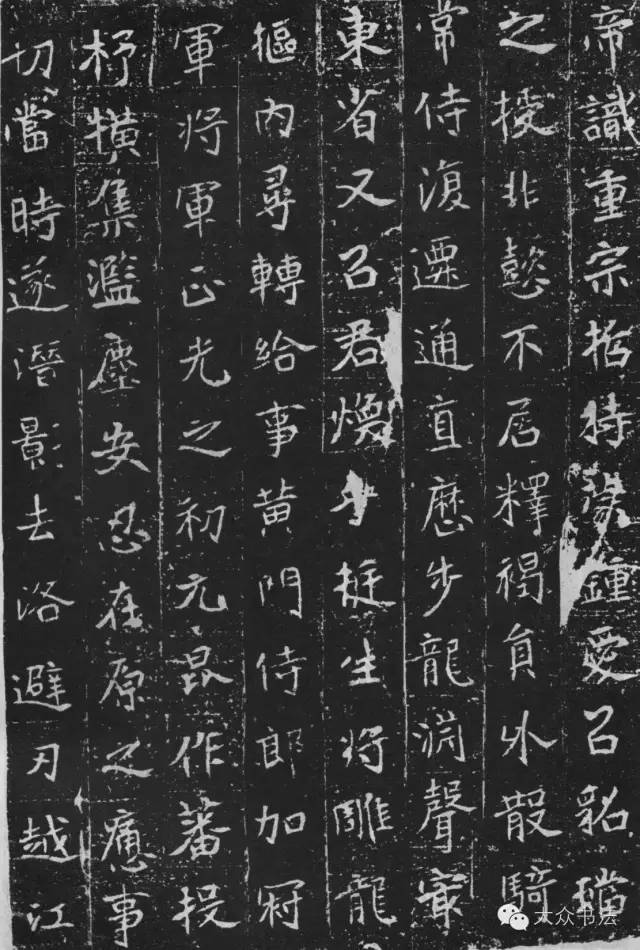 帝識重宗哲特深鍾愛以貂璫
之授非懿不居釋褐員外散騎
常侍復遷通直歷步龍淵聲最
東省又以君煥乎挺生將雕龍
樞內尋轉給事黃門侍郎加冠
軍將軍正光之初元昆作蕃投
杼橫集濫塵安忍在原之應事
切當時遂潛影去洛避刃越江
大众书法